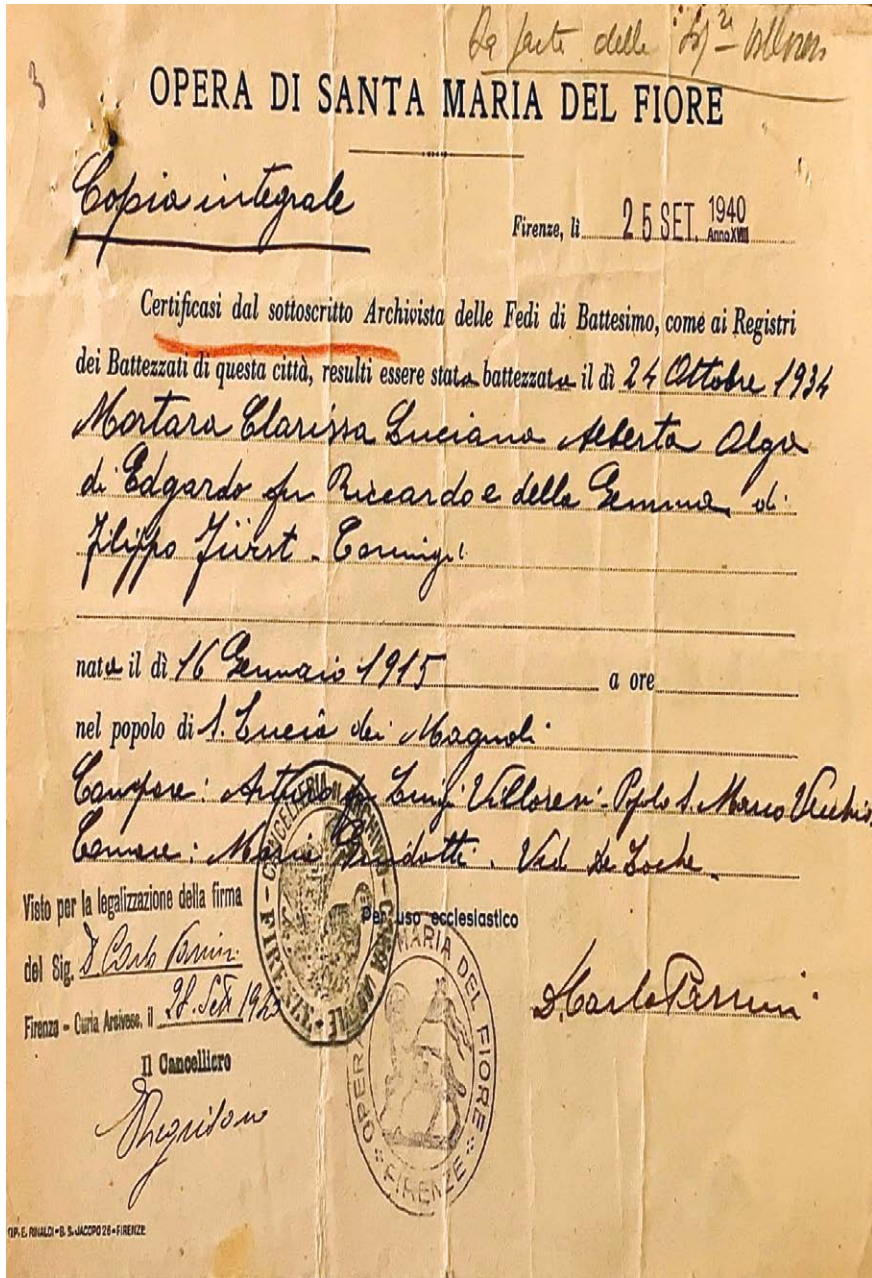 3
Da parte delle Sig.re Villoresi
OPERA DI SANTA MARIA DEL FIORE
Copia integrale
Firenze, lì 25 SET. 1940
Anno XVIII
Certificasi dal sottoscritto Archivista delle Fedi di Battesimo, come ai Registri
dei Battezzati di questa città, resulti essere stata battezzata il dì 24 Ottobre 1934
Mortara Clarissa Luciana Alberta Olga
di Edgardo fu Riccardo e della Gemma di
Filippo Fürst - Coniugi
nata il dì 16 Gennaio 1915 a ore
nel popolo di S. Lucia dei Magnoli
Compare: Arturo fu Luigi Villoresi - Popolo S. Marco Vecchio
Comare: Maria Ved. De
Visto per la legalizzazione della firma
Per uso ecclesiastico
del Sig. D. Carlo
D. Carlo
Firenze - Curia Arcives. il 28 Sett 1940
Il Cancelliere
OPERA DI S. MARIA DEL FIORE
FIRENZE
TIP. E. RINALDI - B. S. JACOPO 26 - FIRENZE